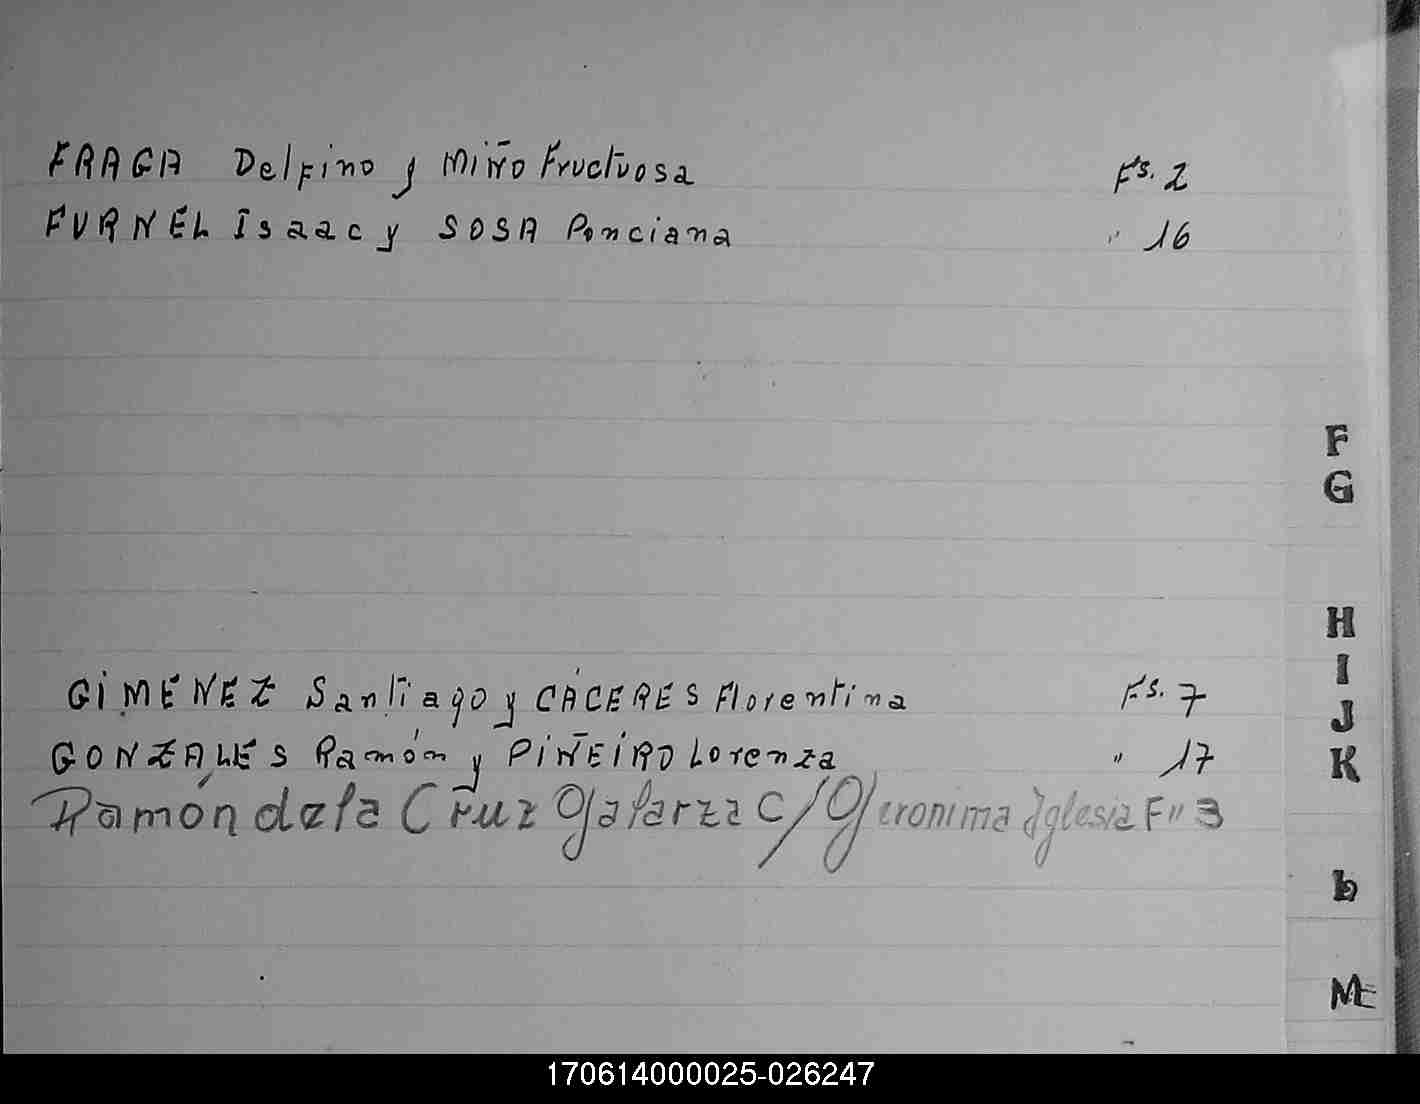 FRAGA Delfino y MIÑO Fructuosa Fs. 2
FURNEL Isaac y SOSA Ponciana " 16
F
G
H
I
GIMÉNEZ Santiago y CÁCERES Florentina Fs. 7
J
GONZÁLES Ramón y PIÑEIRO Lorenza " 17
K
Ramón de la Cruz Galarza C/ Geronima Iglesia F" 3
L
M
170614000025-026247